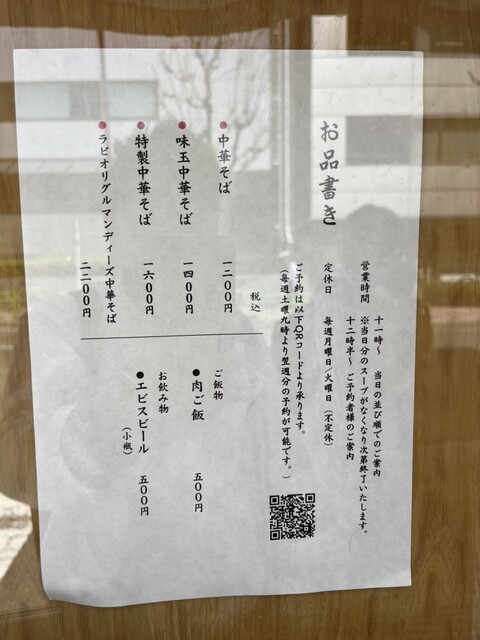 お品書き
営業時間　十一時～　当日の並び順でのご案内
※当日分のスープがなくなり次第終了いたします。
十二時半～ご予約者様のご案内
定休日　毎週月曜日/火曜日（不定休）
ご予約は以下QRコードより承ります。
（毎週土曜九時より翌週分の予約が可能です。）
税込
●中華そば　一二〇〇円
●味玉中華そば　一四〇〇円
●特製中華そば　一六〇〇円
●ラビオリグルマンディーズ中華そば　二二〇〇円
ご飯物
●肉ご飯　五〇〇円
お飲み物
●エビスビール（小瓶）　五〇〇円